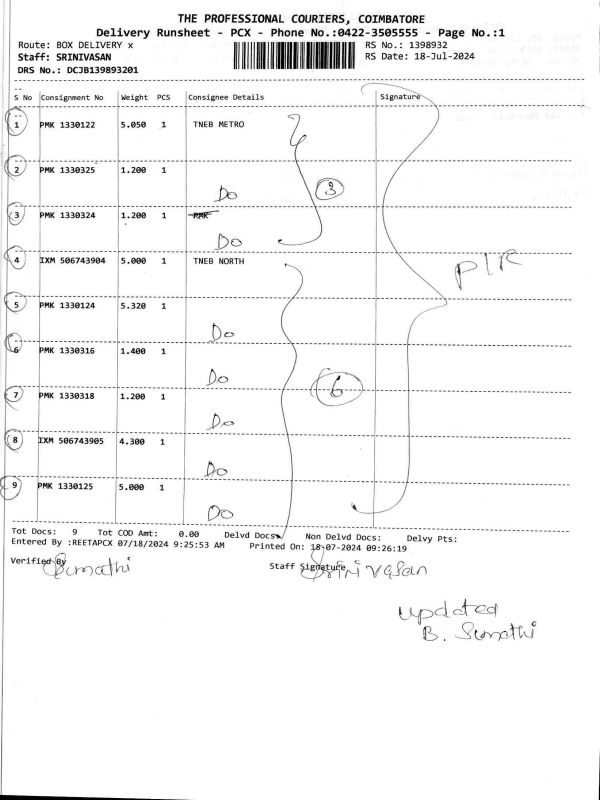 THE PROFESSIONAL COURIERS, COIMBATORE
Delivery Runsheet - PCX - Phone No.:0422-3505555 - Page No.:1
Route: BOX DELIVERY x RS No.: 1398932
Staff: SRINIVASAN RS Date: 18-Jul-2024
DRS No.: DCJB139893201
S No Consignment No Weight PCS Consignee Details Signature
1 PMK 1330122 5.050 1 TNEB METRO
2 PMK 1330325 1.200 1
Do 3
3 PMK 1330324 1.200 1 PMK
Do
4 IXM 506743904 5.000 1 TNEB NORTH
P/R
5 PMK 1330124 5.320 1
Do
6 PMK 1330316 1.400 1
Do 6
7 PMK 1330318 1.200 1
Do
8 IXM 506743905 4.300 1
Do
9 PMK 1330125 5.000 1
Do
Tot Docs: 9 Tot COD Amt: 0.00 Delvd Docs: Non Delvd Docs: Delvy Pts:
Entered By :REETAPCX 07/18/2024 9:25:53 AM Printed On: 18-07-2024 09:26:19
Verified By Sumathi Staff Signature Srinivasan
updated
B. Sumathi